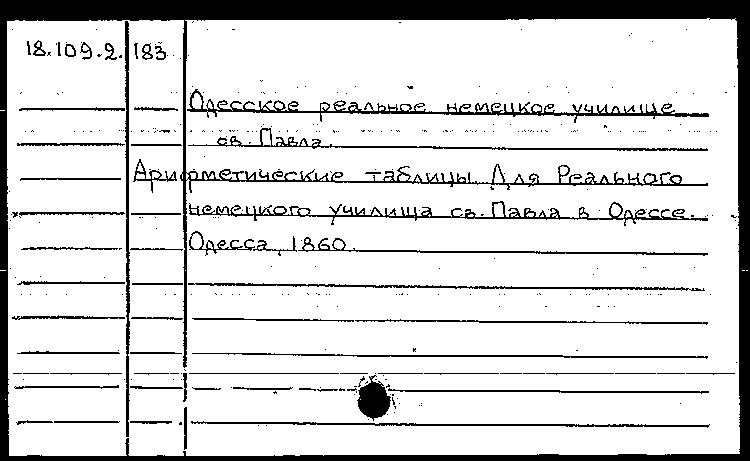 18.109.2. 183
Одесское реальное немецкое училище
св. Павла.
Арифметические таблицы Для Реального
немецкого училища св. Павла в Одессе.
Одесса, 1860.